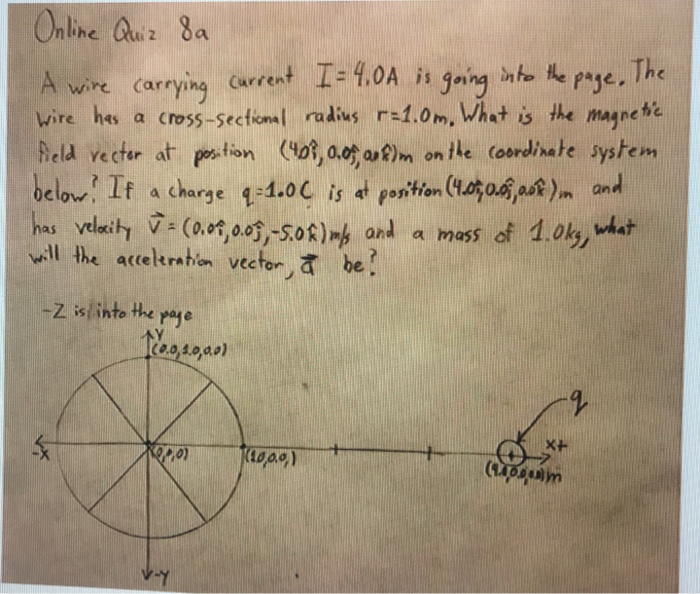 Online Quiz 8a
A wire carrying current I=4.0A is going into the page. The
wire has a cross-sectional radius r=1.0m. What is the magnetic
field vector at position (4.0î, 0.0ĵ, 0.0k̂)m on the coordinate system
below? If a charge q=1.0C is at position (4.0î, 0.0ĵ, 0.0k̂)m and
has velocity v⃗ = (0.0î, 0.0ĵ, -5.0k̂)m/s and a mass of 1.0kg, what
will the acceleration vector, a⃗ be?
-Z is into the page
Y
(0.0, 1.0, 0.0)
q
-X
(0,0,0)
(1.0,0.0,)
X+
-Y